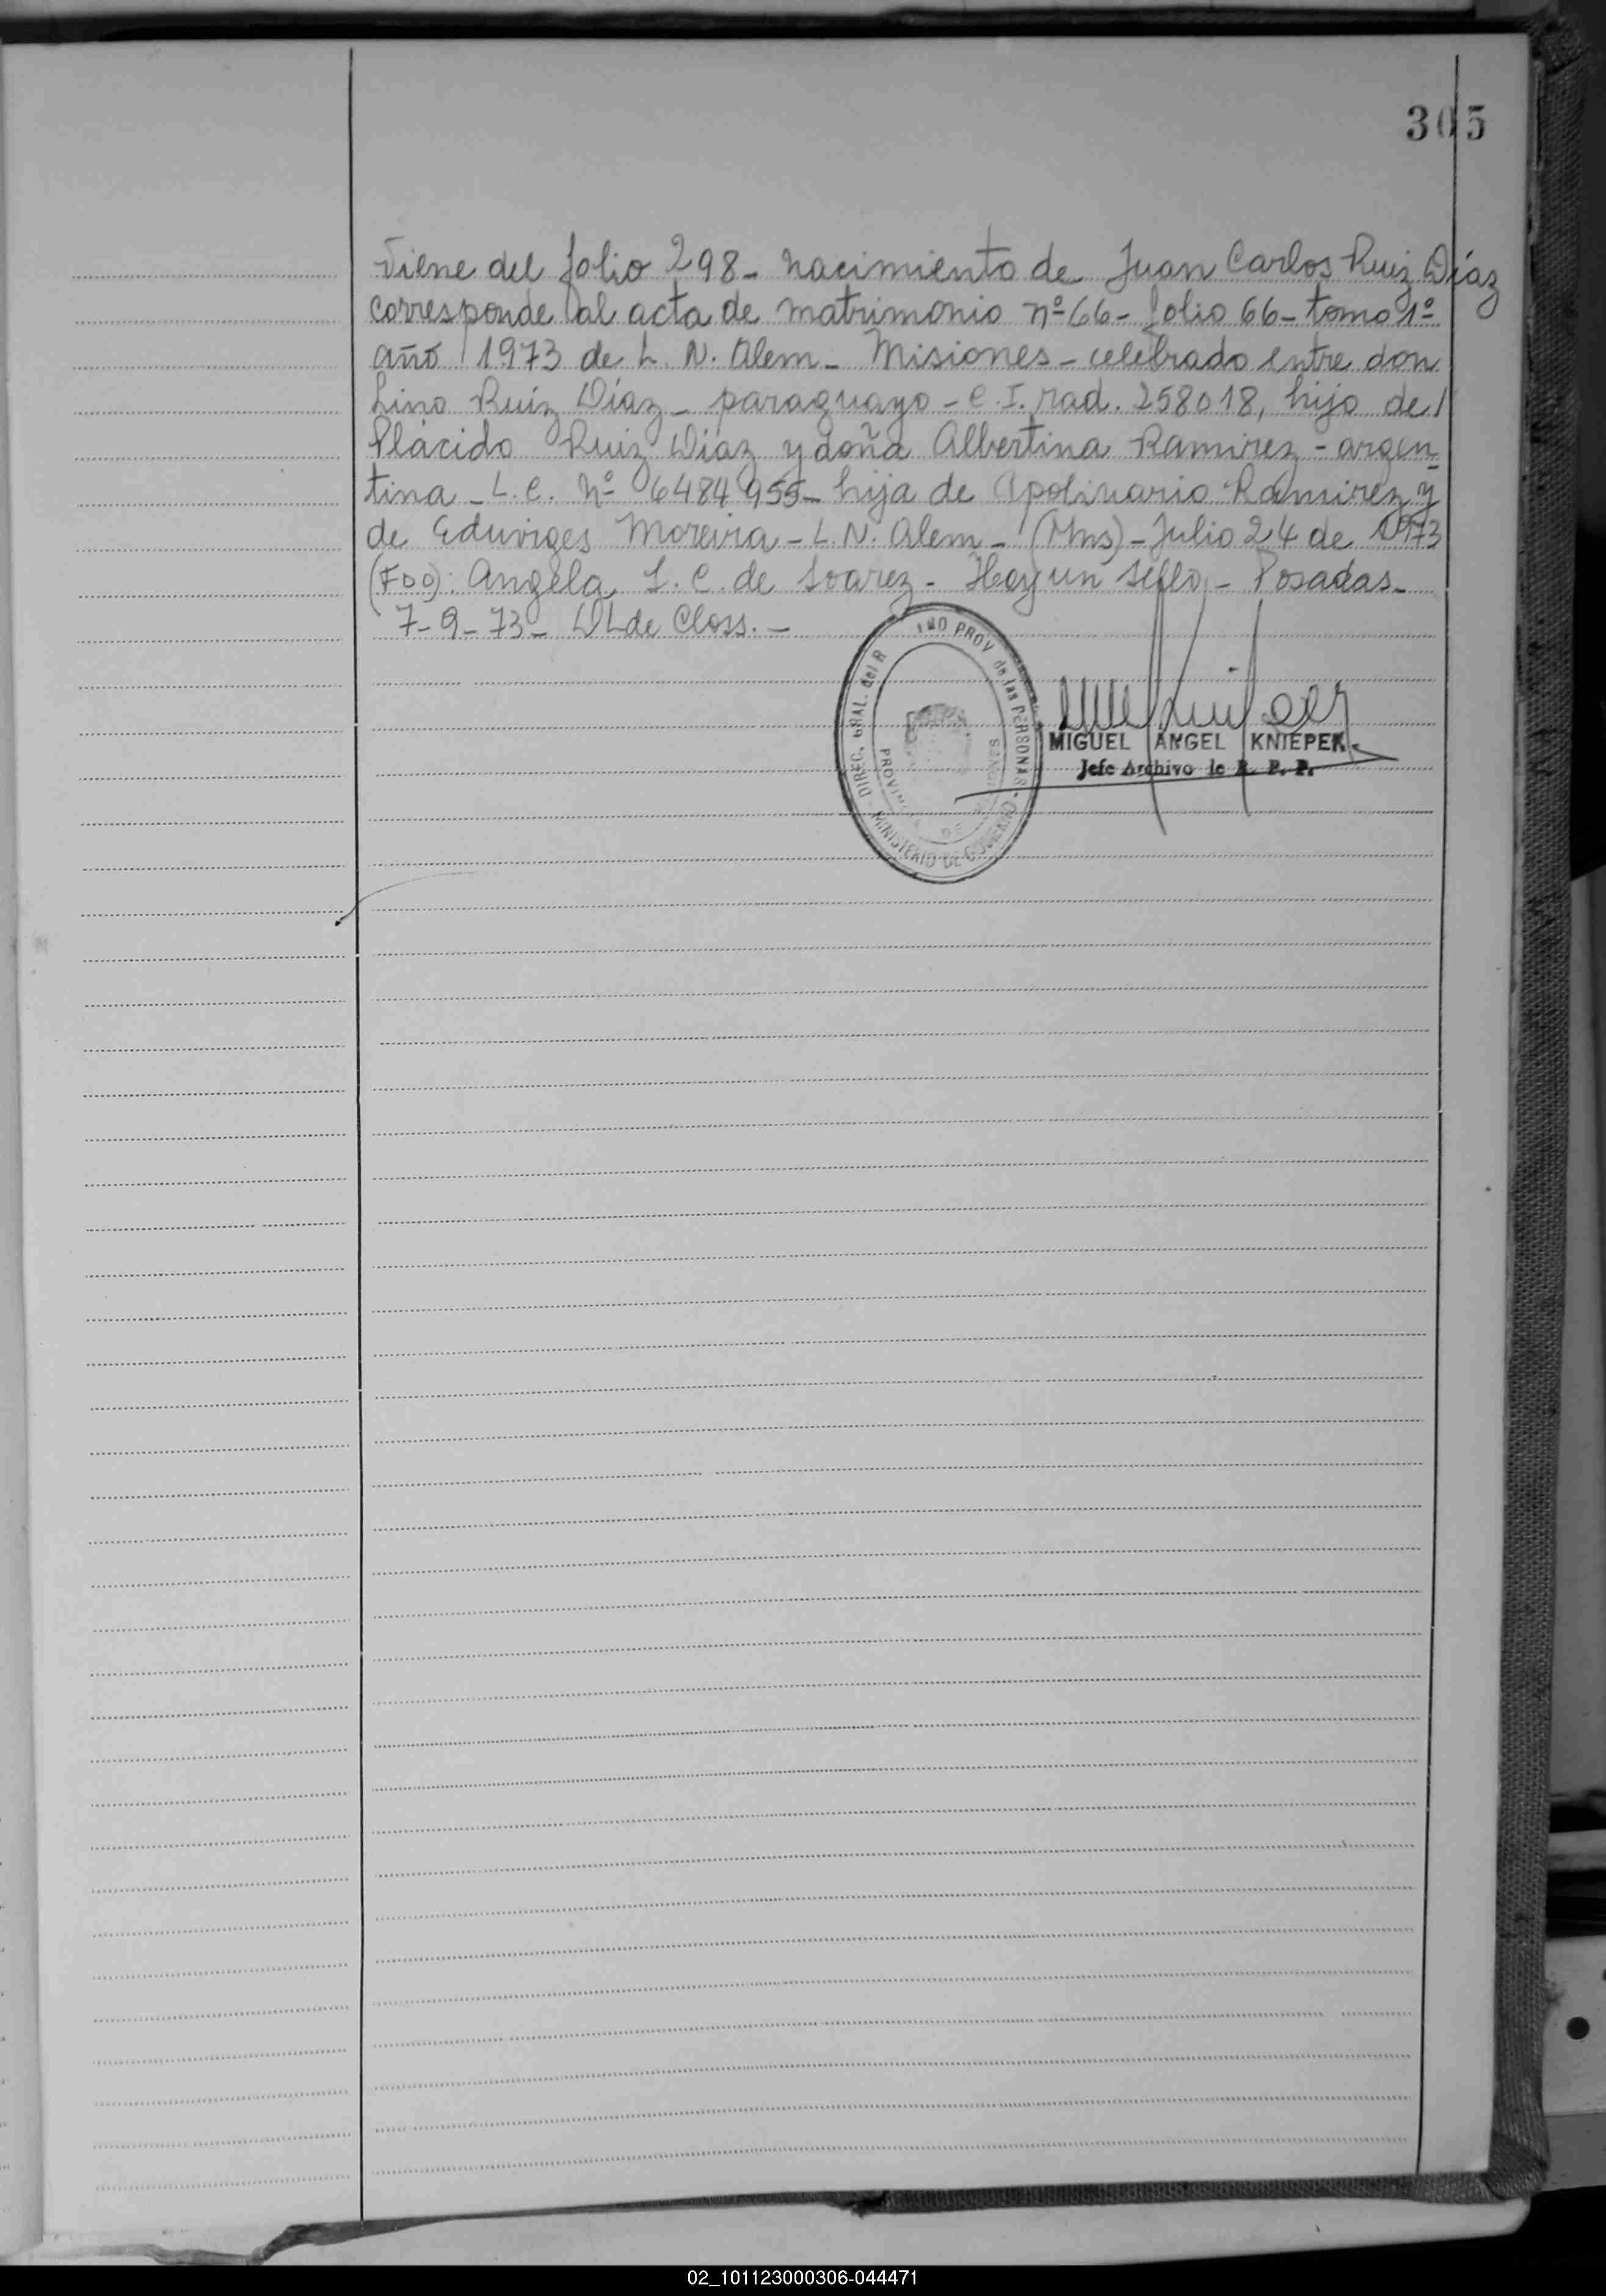 305
Viene del folio 298- nacimiento de Juan Carlos Ruiz Díaz
corresponde al acta de matrimonio nº 66- folio 66- tomo 1º
año 1973 de L. N. Alem- Misiones- celebrado entre don
Lino Ruiz Díaz- paraguayo- C. I. rad. 258018, hijo de/
Plácido Ruiz Díaz y doña Albertina Ramirez- argen-
tina- L.C. Nº 6484955- hija de Apolinario Ramirez y
de Eduviges Moreira- L.N. Alem- (Mns)- Julio 24 de 1973
(FDO): Angela S. C. de Soarez- Hay un sello- Posadas-
7-9-73- DL de Closs.-
DIREC. GRAL. del R PROV de las PERSONAS
MINISTERIO DE GOBIERNO
PROVINCIA DE
MIGUEL ANGEL KNIEPEK
Jefe Archivo de R. P. P.
02_101123000306-044471